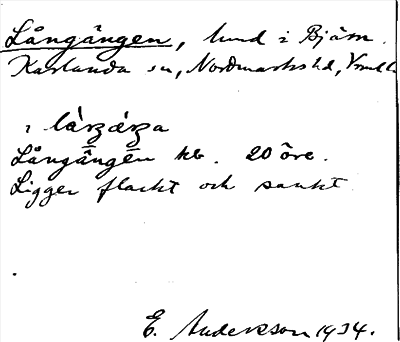 Långängen, lund i Bjäm.
Karlanda sn, Nordmarks hd, Vrml.
i
Långängen kb. 20 öre.
Ligger flackt och sankt
E. Andersson 1934.